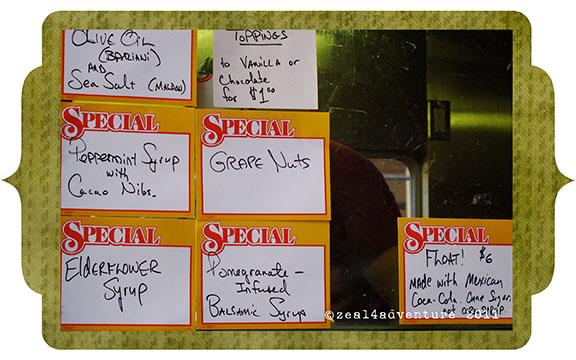 OLIVE OIL
(BARIANI)
AND
SEA SALT (MALDON)
TOPPINGS
to VANILLA or
Chocolate
for $1.00
SPECIAL
Peppermint Syrup
with
Cacao Nibs.
SPECIAL
GRAPE NUTS
SPECIAL
ELDERFLOWER
Syrup
SPECIAL
Pomegranate -
Infused
Balsamic Syrup
SPECIAL
FLOAT! $6
Made with Mexican
Coca-Cola. Cane Sugar,
not corn syrup.
©zeal4adventure